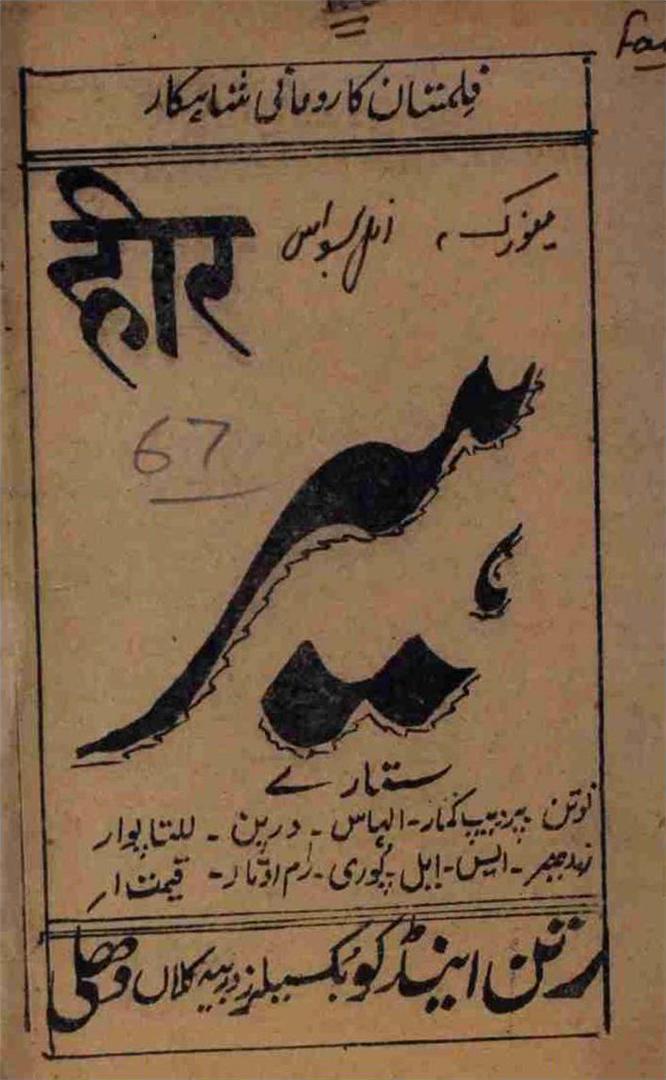 فلمستان کا رومانی شاہکار
میوزک، انل بسواس
हीर
67
ہیر
ستارے
نوتن - پردیپ کمار - الہاس - درپن - للتا پوار
ایس - ایل - پوری - رام اوتار - قیمت ۱ر
رتن اینڈ کو بکسیلرز دریبہ کلاں دھلی